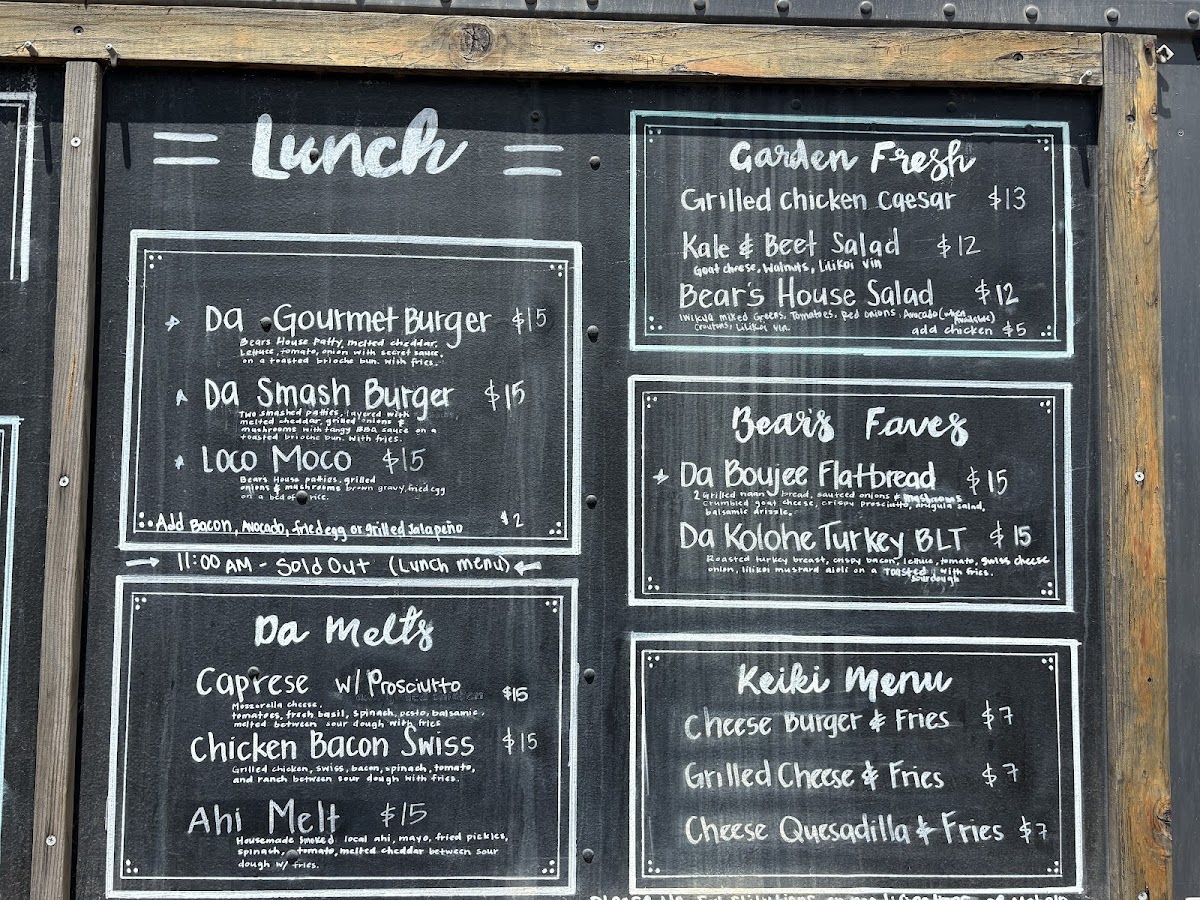 Lunch
Da Gourmet Burger $15
Bears House Patty, melted cheddar,
Lettuce, tomato, onion with secret sauce,
on a toasted brioche bun. With fries.
Da Smash Burger $15
Two smashed patties, layered with
melted cheddar, grilled onions &
mushrooms with tangy BBQ sauce on a
toasted brioche bun. With fries.
Loco Moco $15
Bears House patties, grilled
onions & mushrooms brown gravy, fried egg
on a bed of rice.
Add Bacon, Avocado, fried egg or grilled Jalapeño $2
11:00 AM - Sold Out (Lunch menu)
Da Melts
Caprese w/ Prosciutto $15
Mozzarella cheese,
tomatoes, fresh basil, spinach, pesto, balsamic,
melted between sour dough with fries
Chicken Bacon Swiss $15
Grilled chicken, swiss, bacon, spinach, tomato,
and ranch between sour dough with fries.
Ahi Melt $15
Housemade smoked local ahi, mayo, fried pickles,
spinach, tomato, melted cheddar between sour
dough w/ fries.
Garden Fresh
Grilled chicken caesar $13
Kale & Beet Salad $12
Goat cheese, Walnuts, Lilikoi Vin
Bear's House Salad $12
mixed Greens, Tomatoes, Red onions, Avocado (when Available)
Croutons, Lilikoi Vin.
add chicken $5
Bear's Faves
Da Boujee Flatbread $15
2 Grilled naan bread, sauteed onions & mushrooms
crumbled goat cheese, crispy prosciutto, arugula salad,
balsamic drizzle.
Da Kolohe Turkey BLT $15
Roasted turkey breast, crispy bacon, lettuce, tomato, swiss cheese
onion, lilikoi mustard aioli on a Toasted sourdough with fries.
Keiki Menu
Cheese Burger & Fries $7
Grilled Cheese & Fries $7
Cheese Quesadilla & Fries $7